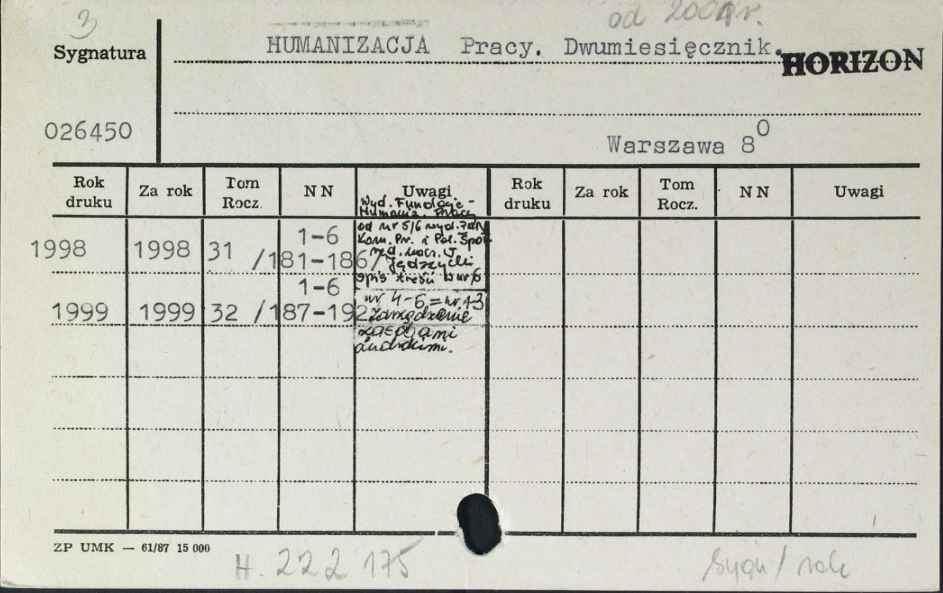 3
od 2001 r.
Sygnatura
HUMANIZACJA Pracy. Dwumiesięcznik.
HORIZON
026450
Warszawa 8⁰
Rok druku Za rok Tom Rocz. NN Uwagi Rok druku Za rok Tom Rocz. NN Uwagi
Wyd. Fundacja
Humaniz. Pracy
od nr 5/6 wyd.
Kom. Pr. i Pol. Społ.
red. nacz.
spis treści w nr 6
1998 1998 31 1-6 /181-186/
nr 4-6 = nr 1-3
Zarządzanie
zasobami
ludzkimi.
1999 1999 32 1-6 /187-192
ZP UMK — 61/87 15 000
H. 222 175
Sygn/rok